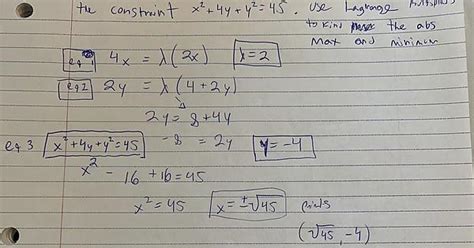 the constraint x²+4y+y²=45. use Lagrange
to find the abs
max and minimum
eq 4x = λ(2x) λ=2
eq2 2y = λ(4+2y)
2y = 8+4y
-8 = 2y y=-4
eq 3 x²+4y+y²=45
x² - 16 + 16 = 45
x² = 45 x=±√45 points
(√45 -4)